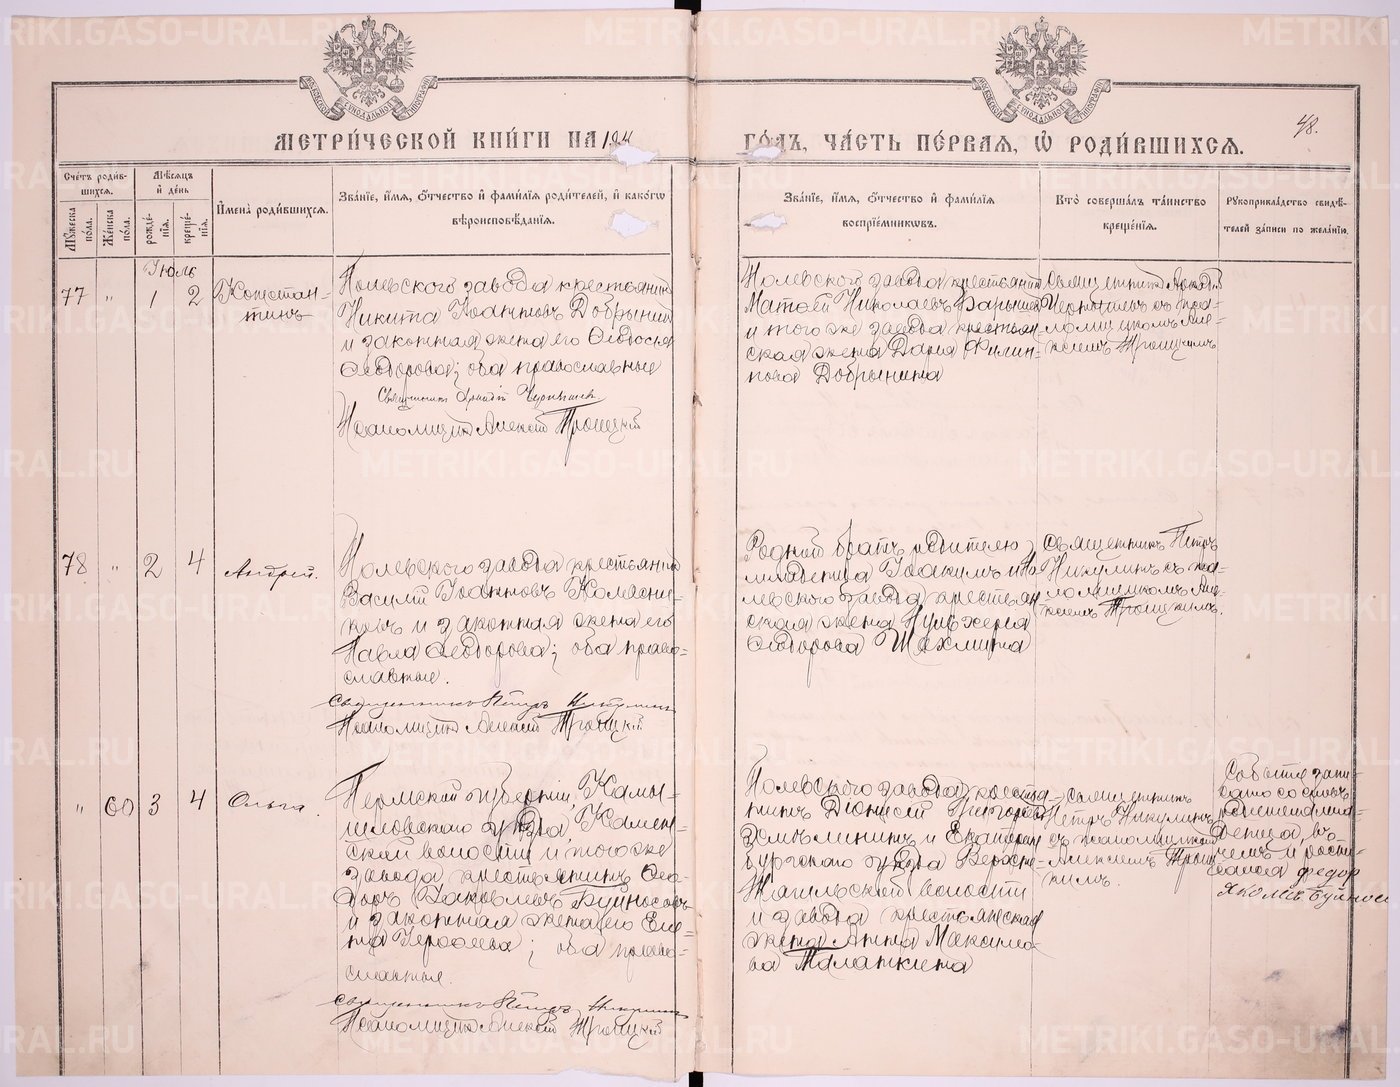 48.
МЕТРИЧЕСКОЙ КНИГИ НА 1 ГОДЪ, ЧАСТЬ ПЕРВАЯ, Ѡ РОДИВШИХСЯ.
Счетъ родившихся.
Мужеска пола.
Женска пола.
Мѣсяцъ и день
рожденія.
крещенія.
Имена родившихся.
Званіе, имя, отчество и фамилія родителей, и какого
вѣроисповѣданія.
Званіе, имя, отчество и фамилія
воспріемниковъ.
Кто совершалъ таинство
крещенія.
Рукоприкладство свидѣ-
телей записи по желанію.
Іюль
77 " 1 2
Констан-
тинъ
Полевского завода крестьянинъ
Никита Іоанновъ Добрынинъ
и законная жена его Ѳеодосія
Ѳеодорова; оба православные
Священникъ Аркадій
Псаломщикъ Алексій Троицкій
Полевского завода крестьянинъ
Матѳей Николаевъ
и того же завода крестьян-
ская жена Дарія Филип-
пова Добрынина
Священникъ Аркадій
съ пса-
ломщикомъ Але-
ксіемъ Троицкимъ
78 " 2 4
Андрей.
Полевского завода крестьянинъ
Василій Іоанновъ
и законная жена его
Павла Ѳеодорова; оба право-
славные.
Священникъ Петръ Никулинъ
Псаломщикъ Алексій Троицкій
Родной братъ родителю
младенца Іоакимъ и По-
левского завода крестьян-
ская жена Пульхерія
Ѳеодорова Шахмина
Священникъ Петръ
Никулинъ съ пса-
ломщикомъ Але-
ксіемъ Троицкимъ.
" 60 3 4
Ольга
Пермской губерніи, Камы-
шловскаго уѣзда Камен-
ской волости и того же
завода крестьянинъ Ѳео-
доръ Іаковлевъ Буйносовъ
и законная жена его Еле-
на; оба право-
славные.
Священникъ Петръ Никулинъ
Псаломщикъ Алексій Троицкій
Полевского завода крестья-
нинъ Діонисій Григорьевъ
и Екатерин-
бургскаго уѣзда Верхне-
Тагильской волости
и завода крестьянская
жена Анна Максимо-
ва Талапкина
Священникъ
Петръ Никулинъ
съ псаломщикомъ
Алексіемъ Троиц-
кимъ.
Событіе запи-
сано со словъ
родителя мла-
денца, въ
чемъ и роспи-
сался Федор
Яковлев Буйносов
METRIKI.GASO-URAL.RU